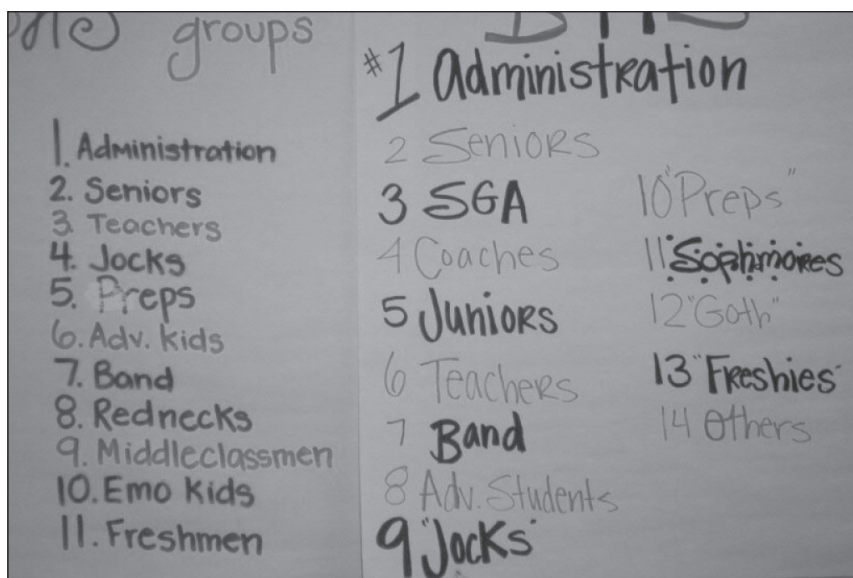 groups
1. Administration
2. Seniors
3. Teachers
4. Jocks
5. Preps
6. Adv. kids
7. Band
8. Rednecks
9. Middleclassmen
10. Emo Kids
11. Freshmen
#1 Administration
2 Seniors
3 SGA
4 Coaches
5 Juniors
6 Teachers
7 Band
8 Adv. Students
9 "Jocks"
10 "Preps"
11 Sophmores
12 "Goth"
13 "Freshies"
14 Others